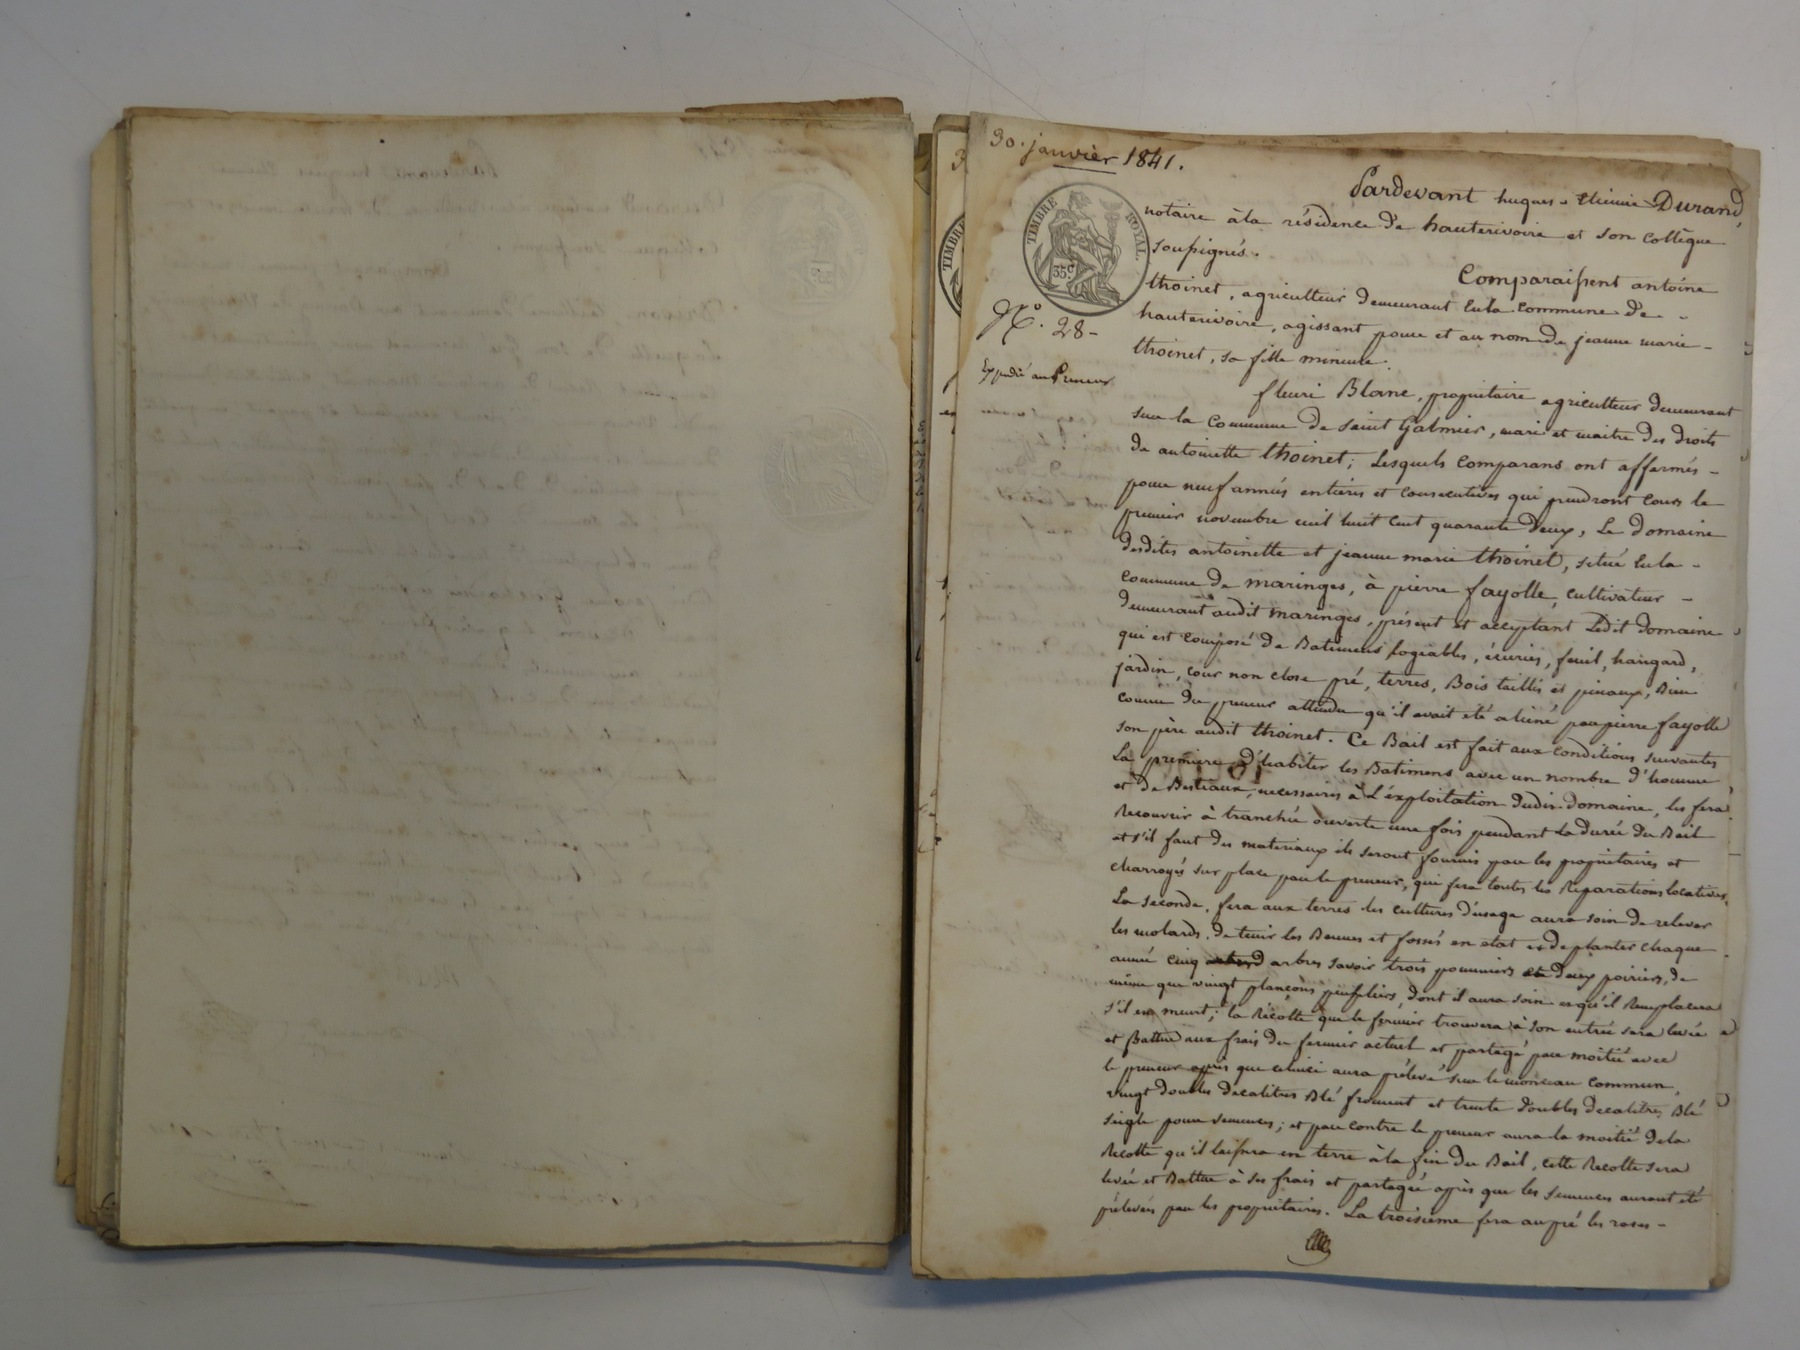 30. janvier 1841.
Pardevant hugues Etienne Durand,
notaire à la résidence de hauterivoire et son collègue
soussignés.
Comparaissent antoine
thoinet, agriculteur demeurant en la commune de -
hauterivoire, agissant pour et au nom de jeanne marie -
thoinet, sa fille mineure.
TIMBRE ROYAL.
35 c
N.° 28-
Expédié au Preneur
fleuri Blanc, propriétaire agriculteur demeurant
sur la Commune de Saint Galmier, mari et maitre des droits
de antoinette thoinet; Lesquels Comparans ont affermés -
pour neuf années entières et consecutives qui prendront cours le
premier novembre mil huit cent quarante deux, Le Domaine
desdites antoinette et jeanne marie thoinet, situé en la -
commune de maringes, à pierre fayolle, cultivateur -
demeurant audit maringes, présent et acceptant Ledit domaine
qui est composé de Batimens logeables, écuries, fenil, hangard,
jardin, cour non close pré, terres, Bois taillis et pinaux, Bien
connu du preneur attendu qu'il avait été aliéné par pierre fayolle
son père audit thoinet. Ce Bail est fait aux conditions suivantes
La première d'habiter les Batimens avec un nombre d'homme
et de Bestiaux, necessaires à L'éxploitation dudit domaine, les fera
Recouvrir à tranchée ouverte une fois pendant la durée du Bail
et s'il faut des materiaux ils seront fournis par les propriétaires et
charroyés sur place par le preneur, qui fera toutes les Réparations locatives.
La seconde, fera aux terres les cultures d'usage aura soin de relever
les molards, de tenir les Bennes et fossés en état et de planter chaque
année cinq arbres savoir trois pommiers et deux poiriers, de
même que vingt plançons peupliers, dont il aura soin et qu'il Remplacera
s'il en meurt; la Récolte que le fermier trouvera à son entrée sera levée
et Battue aux frais du fermier actuel et partagé par moitié avec
le preneur après que celuici aura prélevé sur le monceau commun,
vingt doubles decalitres Blé froment et trente doubles decalitres Blé
seigle pour semences; et par contre le preneur aura la moitié de la
Récolte qu'il laissera en terre à la fin du Bail, cette Recolte sera
levée et Battue à ses frais et partagée après que les semences auront été
prélevées par les propriétaires. La troisieme fera au pré les rases -